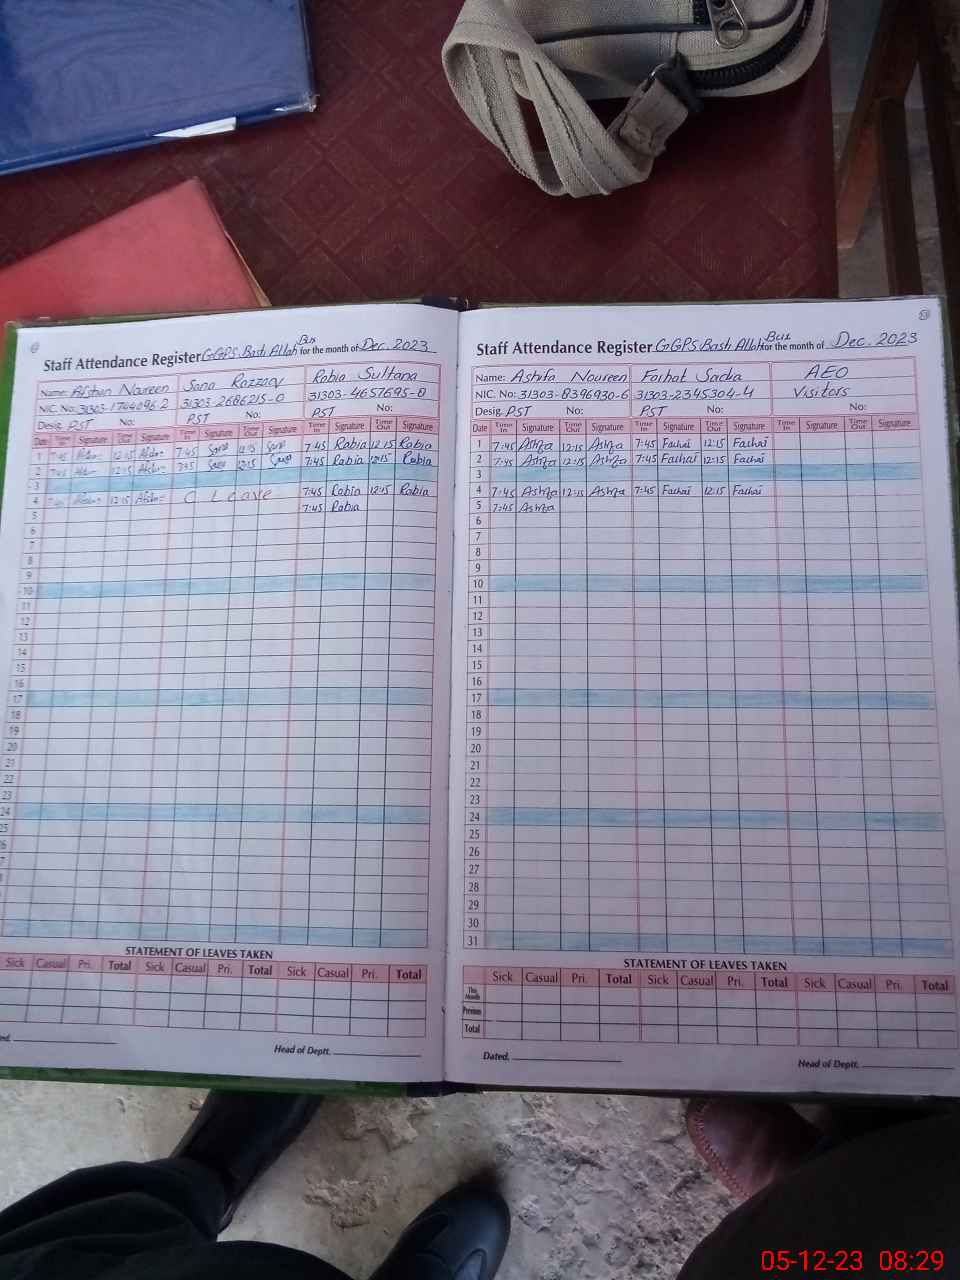 Staff Attendance Register GGPS Basti Allah Bux for the month of Dec. 2023
Name: Afshan Noureen Sana Razzaq Rabia Sultana
NIC. No: 31303-1744096-2 31303-2686215-0 31303-4657695-8
Desig. PST No: PST No: PST No:
Date Time In Signature Time Out Signature Time In Signature Time Out Signature Time In Signature Time Out Signature
1 7:45 12:15 7:45 Sana 12:15 Sana 7:45 Rabia 12:15 Rabia
2 7:45 12:15 7:45 Sana 12:15 Sana 7:45 Rabia 12:15 Rabia
3
4 7:45 12:15 C Leave 7:45 Rabia 12:15 Rabia
5 7:45 Rabia
6
7
8
9
10
11
12
13
14
15
16
17
18
19
20
21
22
23
24
25
26
7
STATEMENT OF LEAVES TAKEN
Sick Casual Pri. Total Sick Casual Pri. Total Sick Casual Pri. Total
Head of Deptt.
Staff Attendance Register GGPS Basti Allah Bux for the month of Dec. 2023
Name: Ashifa Noureen Farhat Sadia AEO
NIC. No: 31303-8396930-6 31303-2345304-4 Visitors
Desig. PST No: PST No: No:
Date Time In Signature Time Out Signature Time In Signature Time Out Signature Time In Signature Time Out Signature
1 7:45 Ashfa 12:15 Ashfa 7:45 Farhat 12:15 Farhat
2 7:45 Ashfa 12:15 Ashfa 7:45 Farhat 12:15 Farhat
3
4 7:45 Ashfa 12:15 Ashfa 7:45 Farhat 12:15 Farhat
5 7:45 Ashfa
6
7
8
9
10
11
12
13
14
15
16
17
18
19
20
21
22
23
24
25
26
27
28
29
30
31
STATEMENT OF LEAVES TAKEN
Sick Casual Pri. Total Sick Casual Pri. Total Sick Casual Pri. Total
This Month
Previous
Total
Dated. Head of Deptt.
05-12-23 08:29